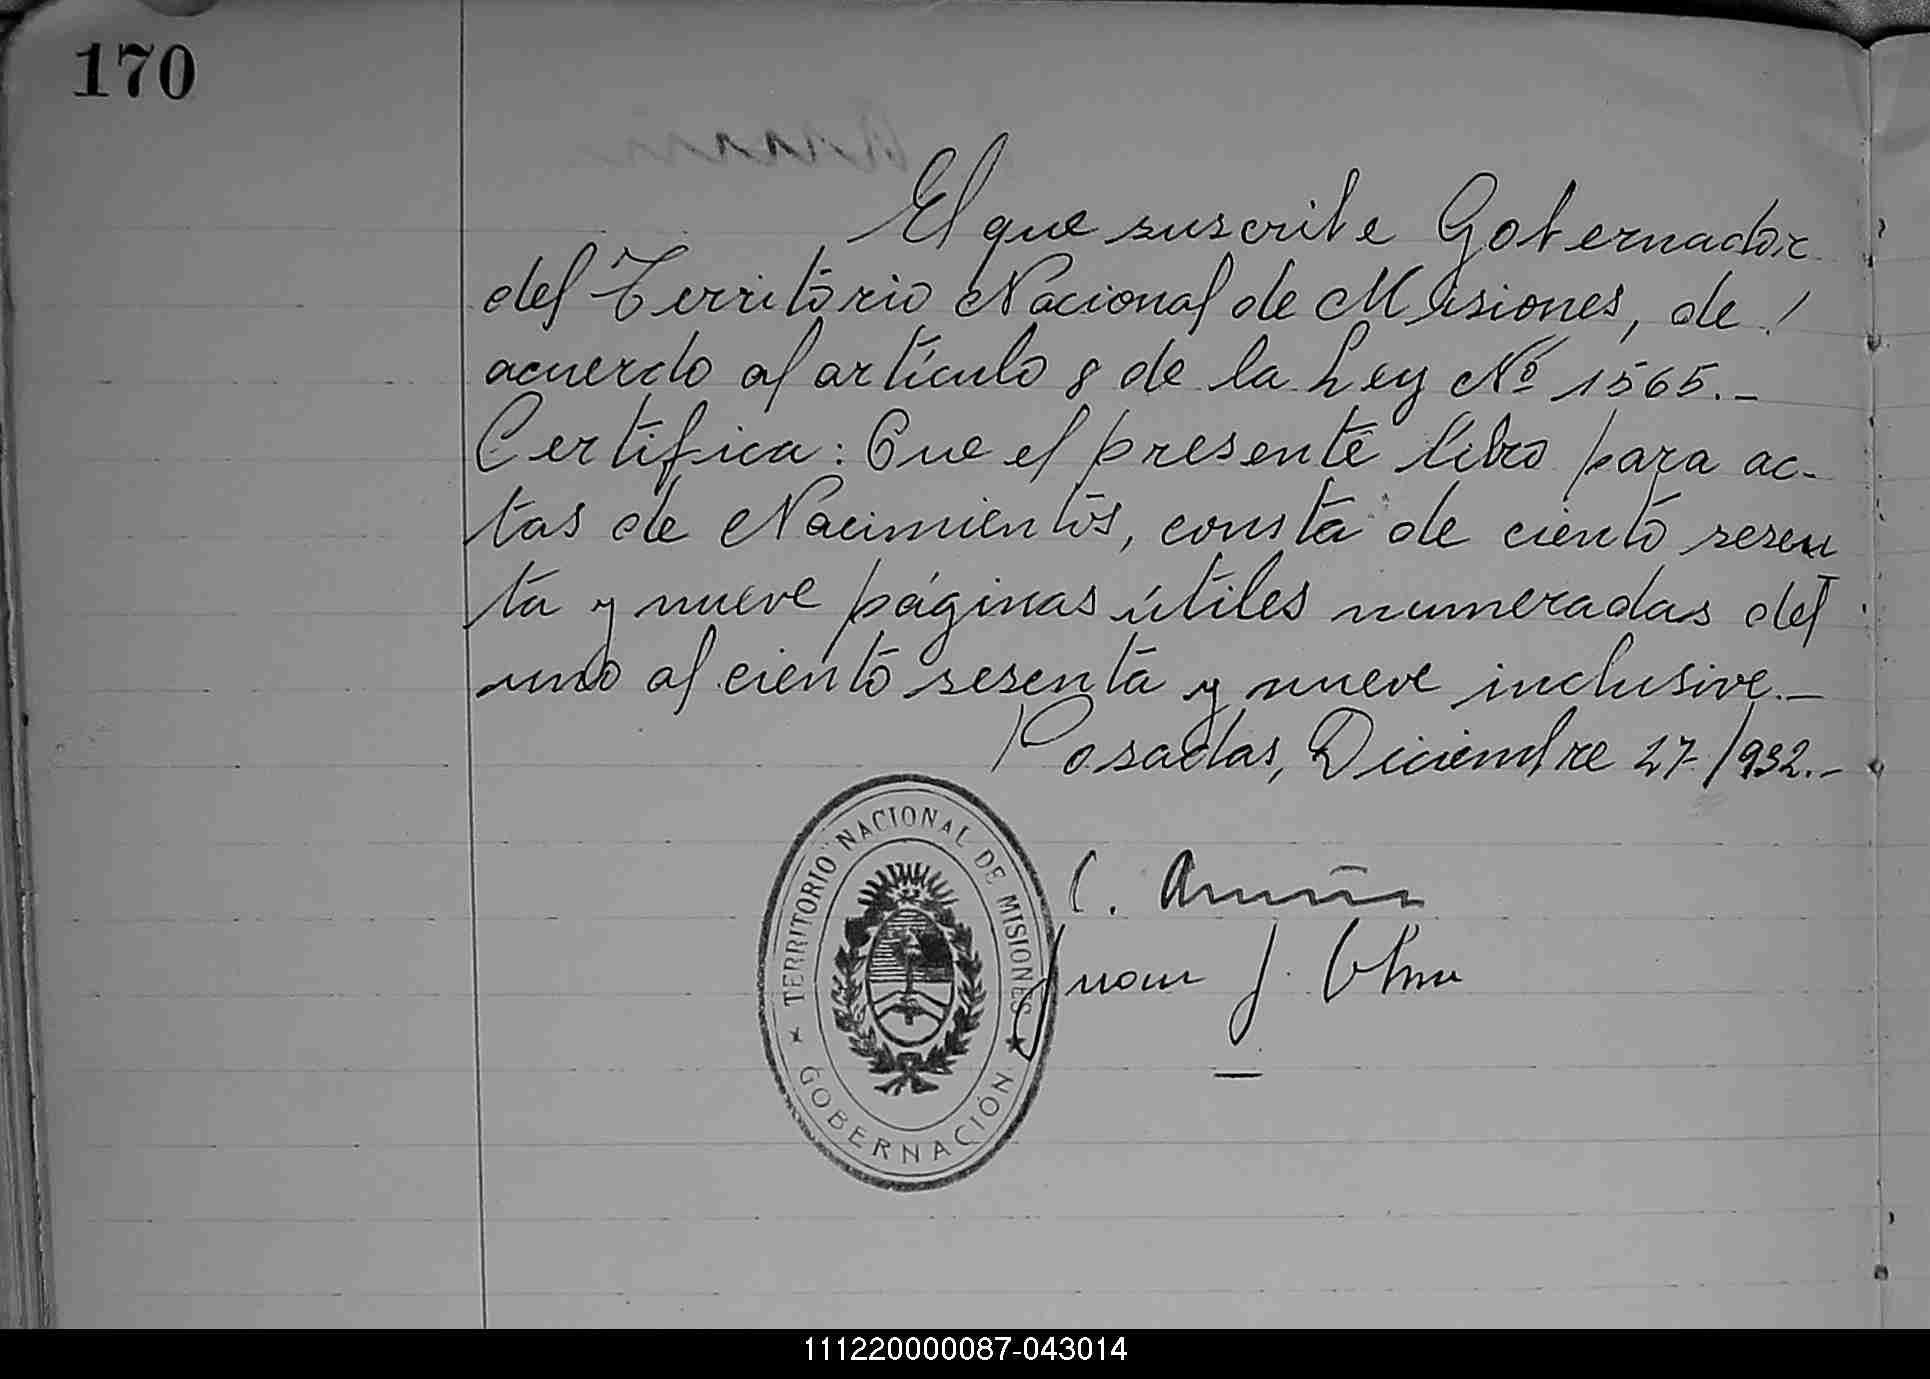 170
El que suscribe Gobernador
del Territorio Nacional de Misiones, de
acuerdo al artículo 8 de la Ley Nº 1565.-
Certifica: Que el presente libro para ac-
tas de Nacimientos, consta de ciento sesen
ta y nueve páginas útiles numeradas del
uno al ciento sesenta y nueve inclusive.-
Posadas, Diciembre 27/932.-
TERRITORIO NACIONAL DE MISIONES
GOBERNACIÓN
C.
Juan J.
111220000087-043014